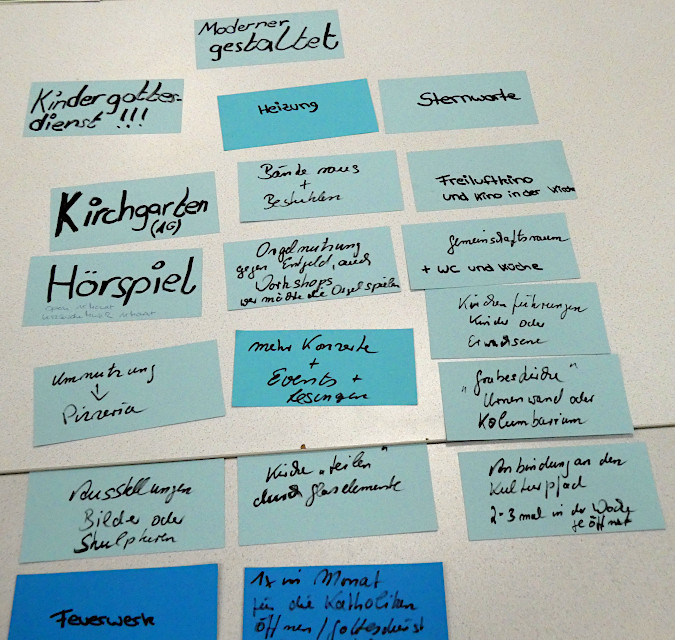 Moderner
gestaltet
Kindergottes-
dienst !!!
Heizung
Sternwarte
Kirchgarten
(AG)
Bänke raus
+
Bestuhlen
Freiluftkino
und Kino in der Kirche
Hörspiel
Orgelnutzung
gegen Entgeld, auch
Workshops
wer möchte die Orgel spielen
Gemeinschaftsraum
+ WC und Küche
Kirchenführungen
Kinder oder
Erwachsene
Umnutzung
↓
Pizzeria
mehr Konzerte
+
Events +
Lesungen
"Grabeskirche"
Urnenwand oder
Kolumbarium
Ausstellungen
Bilder oder
Skulpturen
Kirche "teilen"
durch Glaselemente
Anbindung an den
Kulturpfad
2-3 mal in der Woche
geöffnet
Feuerwerk
1x im Monat
für die Katholiken
öffnen/Gottesdienst